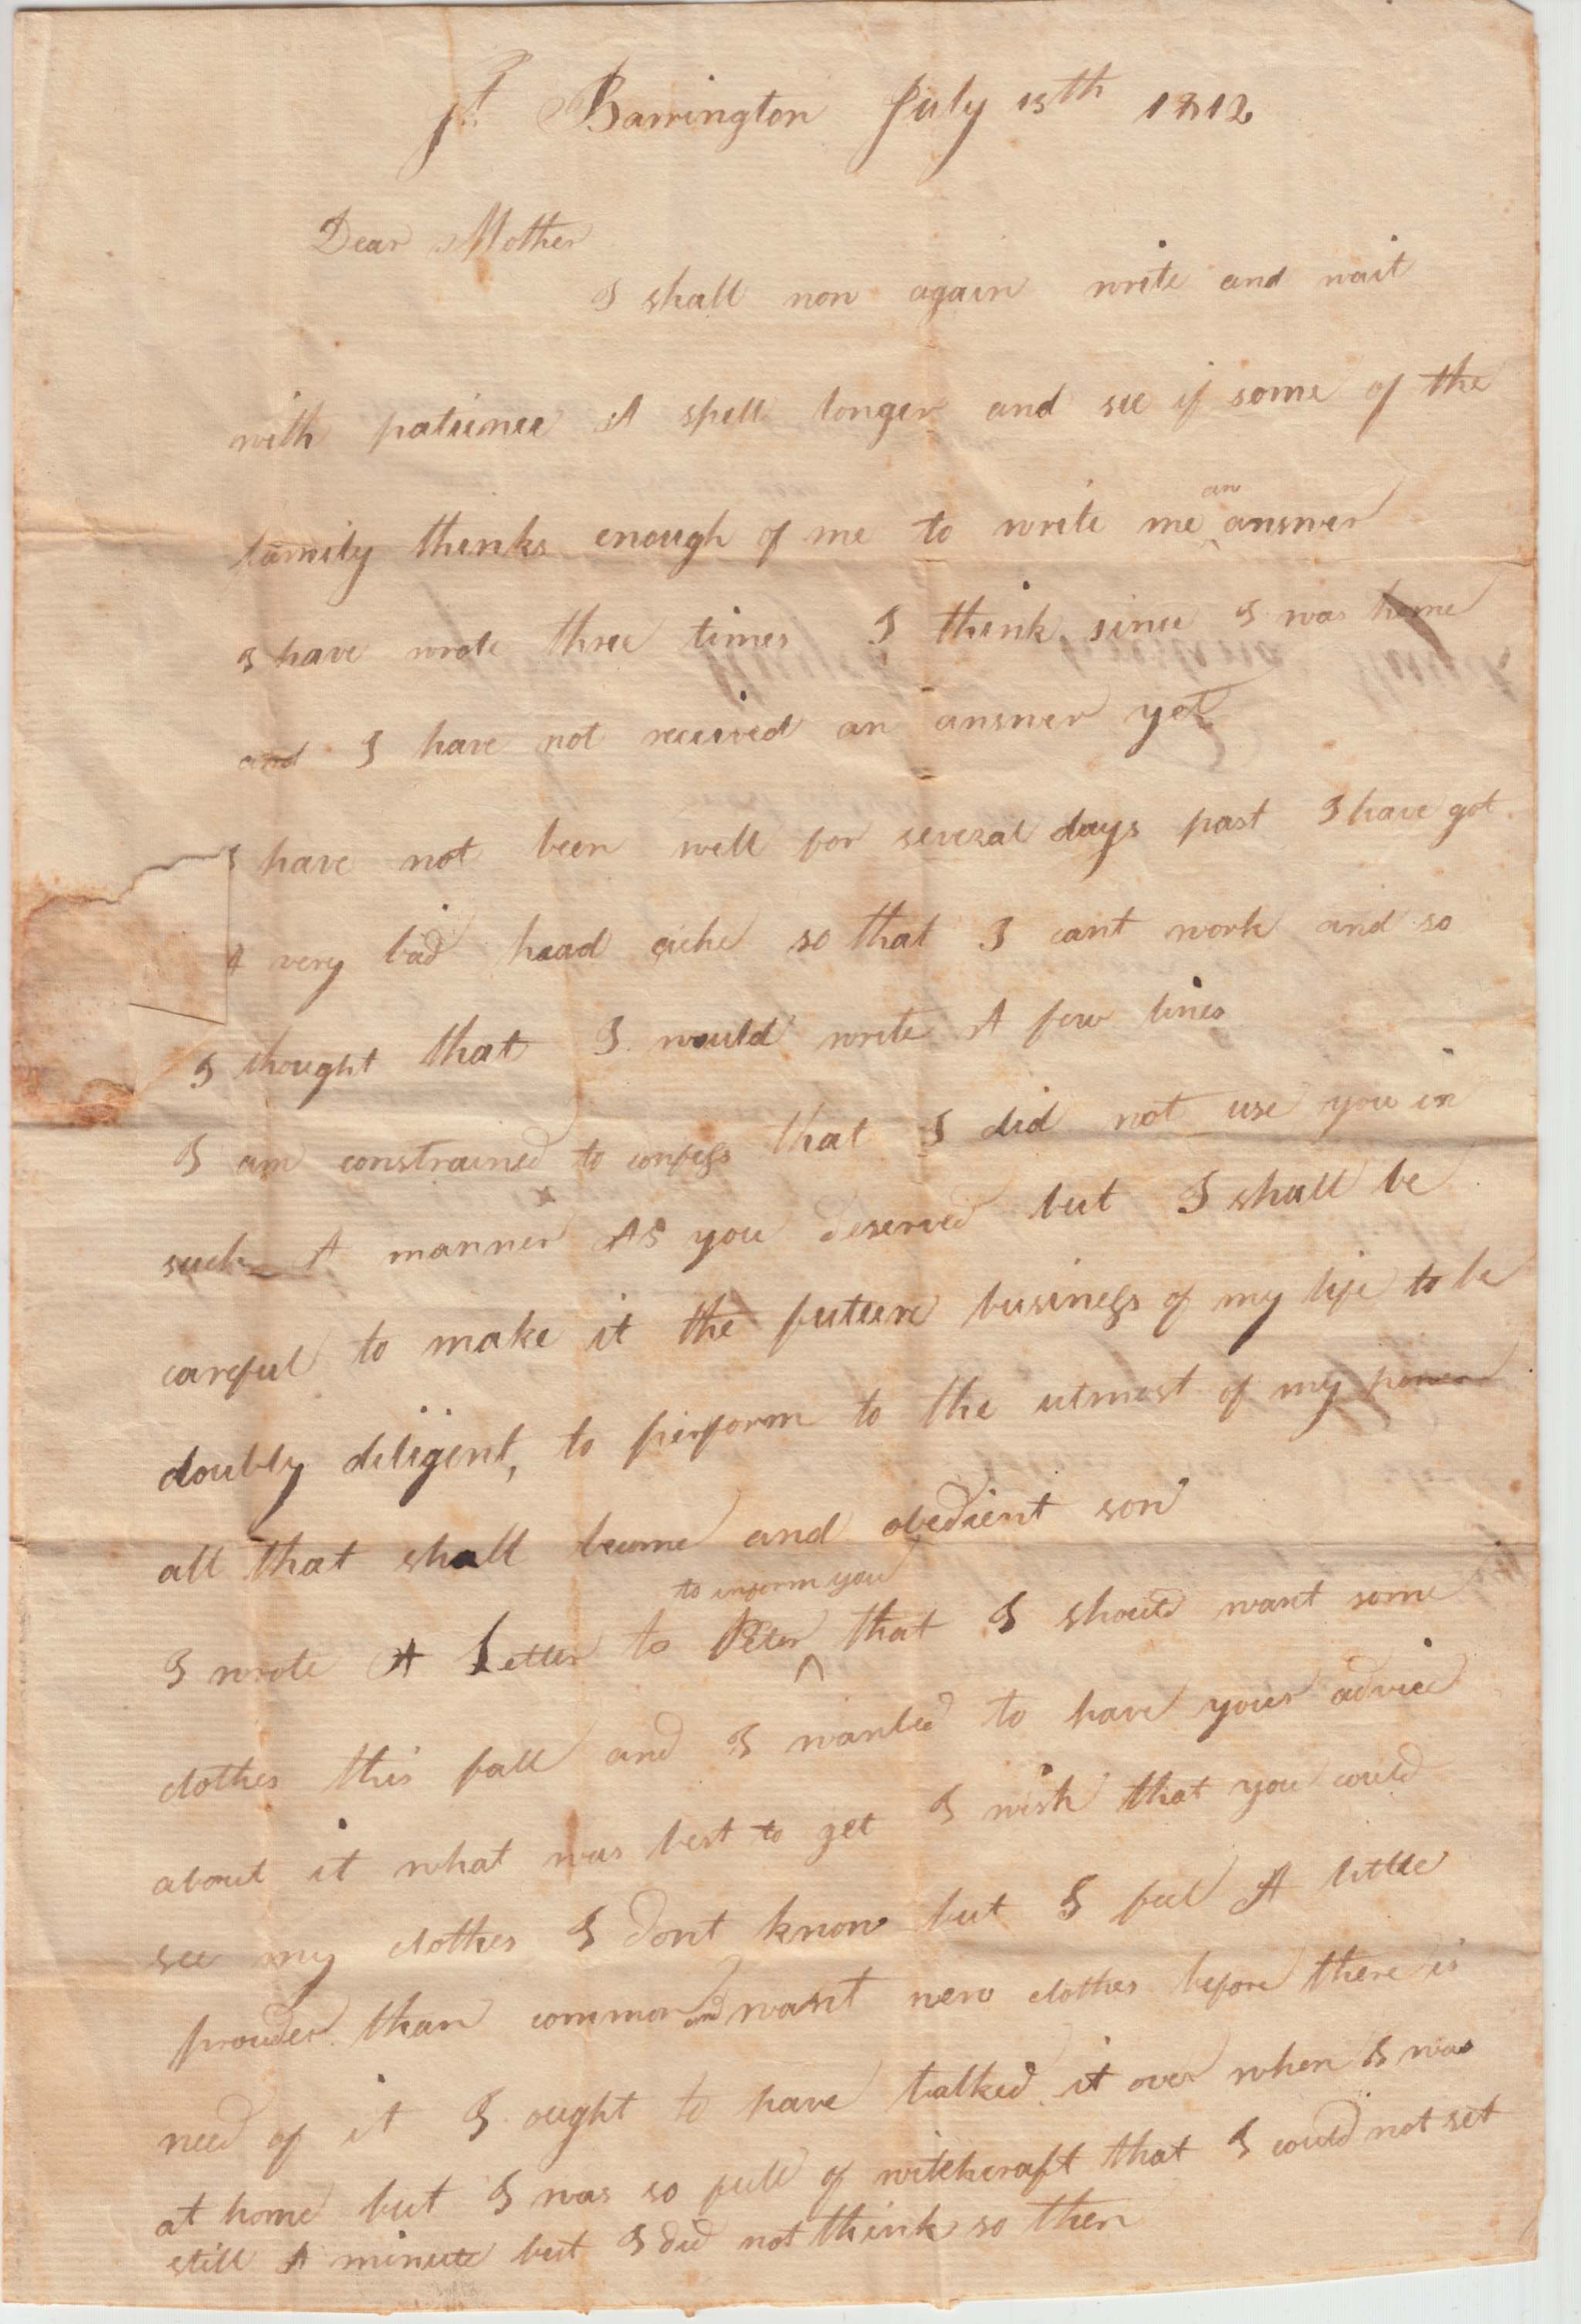 Gt Barrington July 13th 1812
Dear Mother
I shall now again write and wait
with patience A spell longer and see if some of the
family thinks enough of me to write me an answer
I have wrote three times I think since I was home
and I have not received an answer yet
I have not been well for several days past I have got
A very bad head ache so that I cant work and so
I thought that I would write A few lines
I am constrained to confess that I did not use you in
such A manner AS you deserved but I shall be
careful to make it the future business of my life to be
doubly diligent, to perform to the utmost of my power
all that shall become and obedient son
I wrote A Letter to Peter to inform you that I should want some
clothes this fall and I wanted to have your advice
about it what was best to get I wish that you could
see my clothes I dont know but I feel A little
prouder than common and want new clothes before there is
need of it I ought to have talked it over when I was
at home but I was so full of witchcraft that I could not set
still A minute but I did not think so then